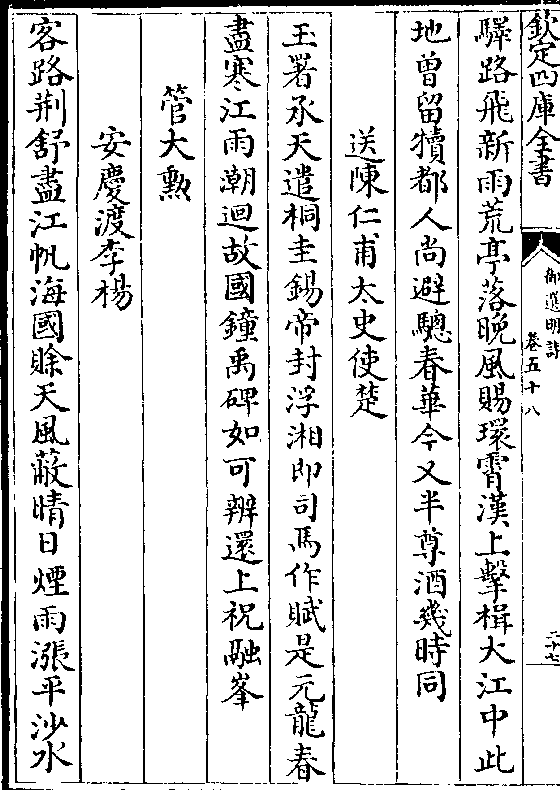 欽定四庫全書
御選明詩
卷五十八
二十七
驛路飛新雨荒亭落晚風賜環霄漢上擊楫大江中此
地曾留犢都人尚避驄春華今又半尊酒幾時同
送陳仁甫太史使楚
玉署承天遣桐圭錫帝封浮湘即司馬作賦是元龍春
盡寒江雨潮迴故國鐘禹碑如可辨還上祝融峯
管大勲
安慶渡李楊
客路荆舒盡江帆海國賒天風蔽晴日煙雨漲平沙水